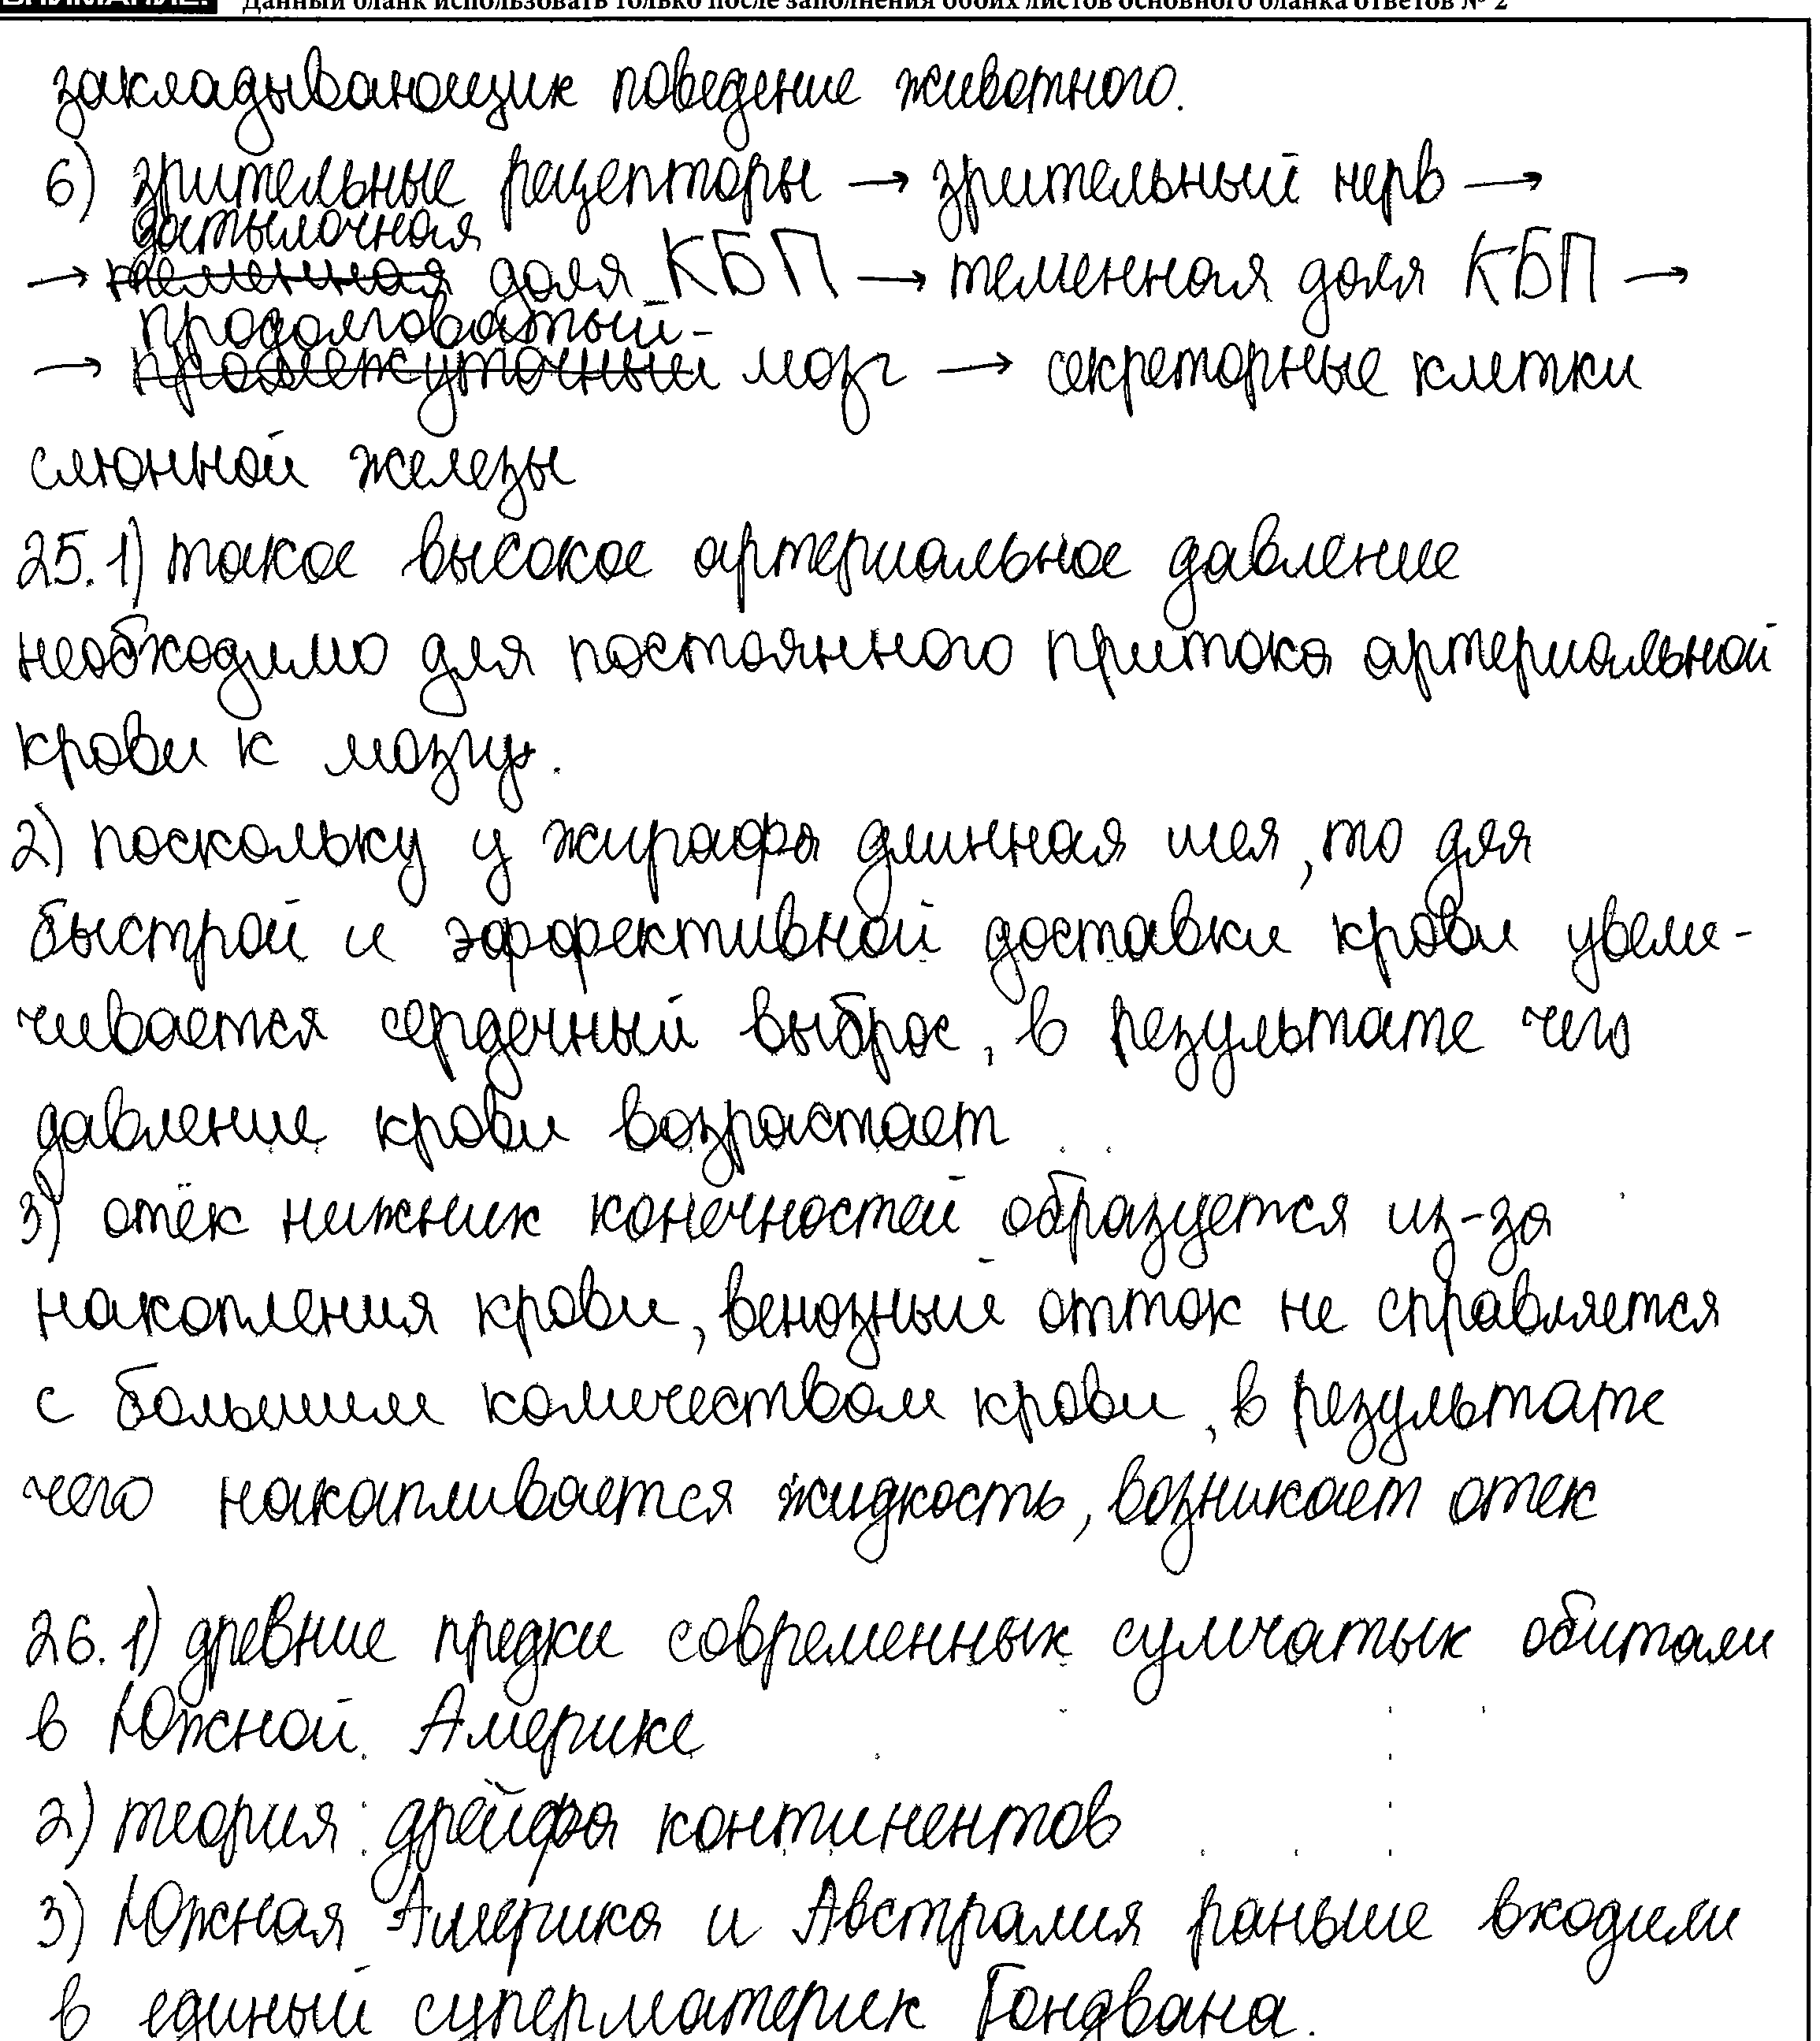 ВНИМАНИЕ! Данный бланк использовать только после заполнения обоих листов основного бланка ответов № 2
закладывающих поведение животного.
6) зрительные рецепторы → зрительный нерв →
затылочная
→ теменная доля КБП → теменная доля КБП →
продолговатый-
→ промежуточный мозг → секреторные клетки
слюнной железы
25. 1) такое высокое артериальное давление
необходимо для постоянного притока артериальной
крови к мозгу.
2) поскольку у жирафа длинная шея, то для
быстрой и эффективной доставки крови увели-
чивается сердечный выброс, в результате чего
давление крови возрастает
3) отёк нижних конечностей образуется из-за
накопления крови, венозный отток не справляется
с большим количеством крови, в результате
чего накапливается жидкость, возникает отек
26. 1) древние предки современных сумчатых обитали
в Южной Америке
2) теория дрейфа континентов
3) Южная Америка и Австралия раньше входили
в единый суперматерик Гондвана.